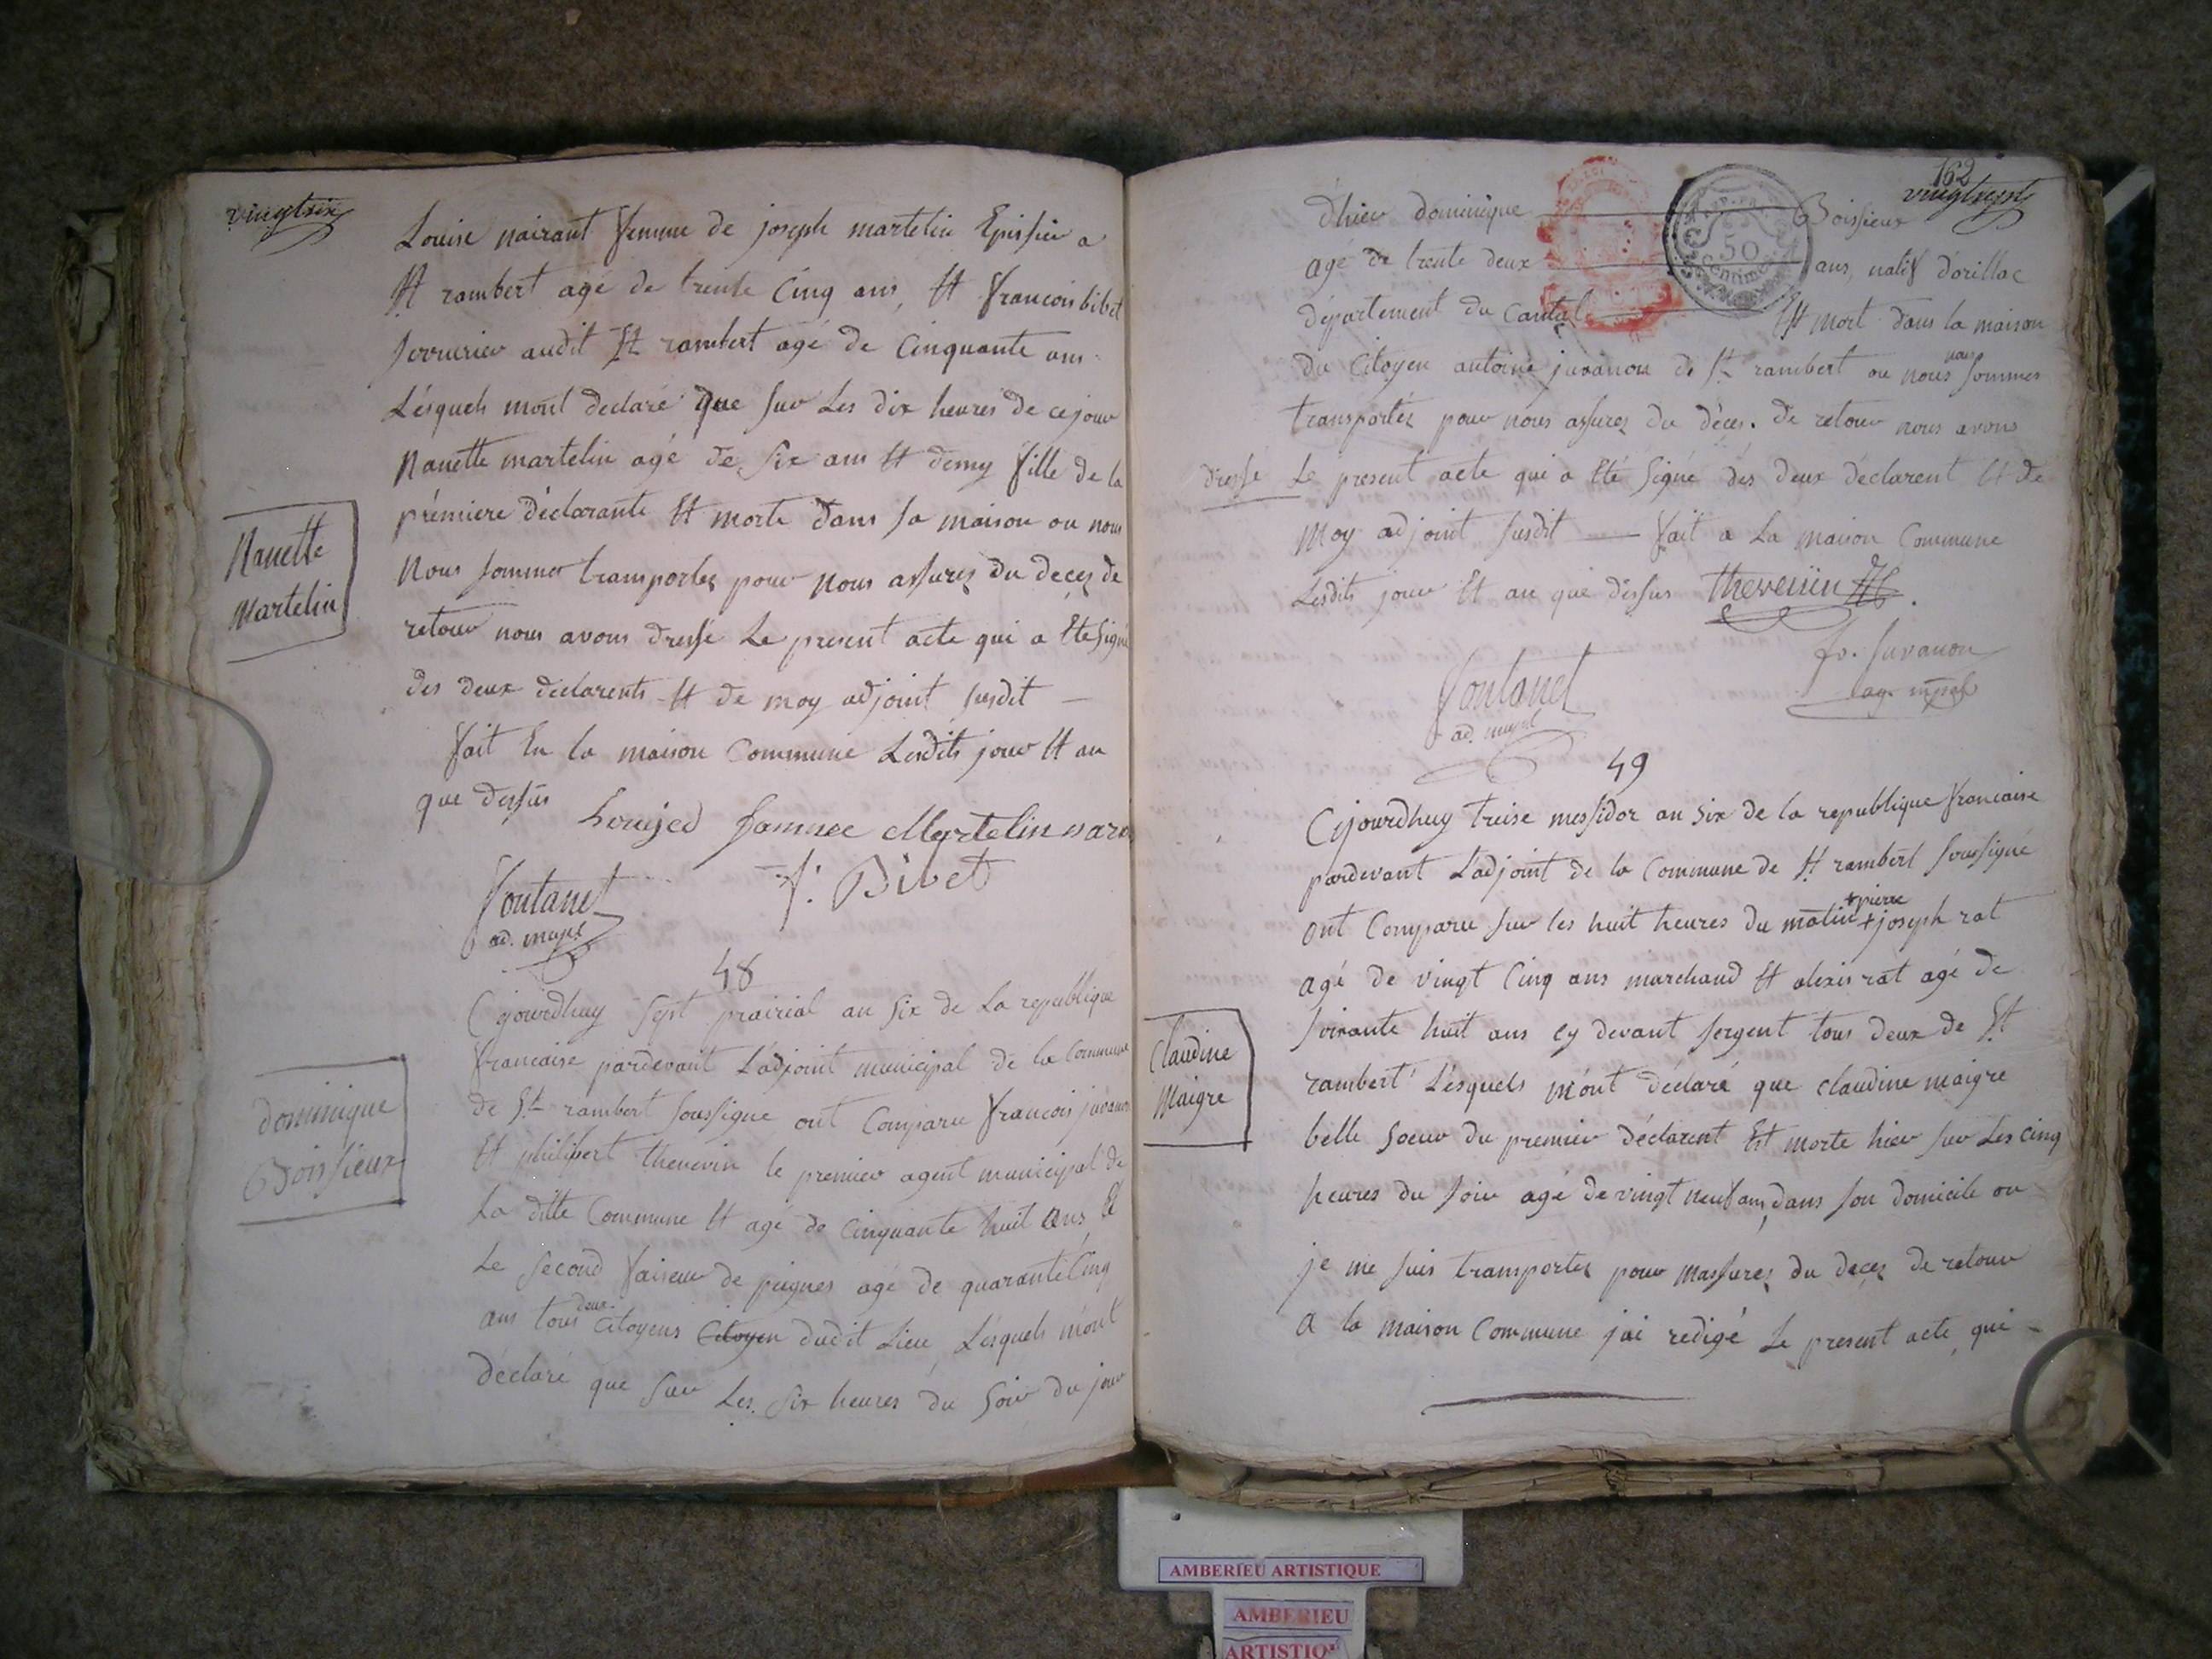 vingtsix
Louise nairant femme de joseph martelin Epissier a
St rambert agé de trente Cinq ans, Et francois bibet
serrurier audit St rambert agé de Cinquante ans
Lésquels mont declaré que sur Les dix heures de ce jour
Nanette martelin agé de six ans Et demy fille de la
prémiere déclarante Et morte dans sa maison ou nous
Nous sommes transportez pour nous assurez du decez de
retour nous avons dressé Le present acte qui a Eté signé
des deux déclarents Et de moy adjoint susdit
fait En la maison Commune Lesdits jour Et an
que dessus
Nanette
Martelin
Louised famnee Martelin nara
f. Bibet
fontanet
ad. mupal
48
Cejourdhuy sept prairial an six de La republique
francaise pardevant L'adjoint municipal de la Commune
de St rambert soussigne ont Comparu francois juvanon
Et philibert thevenin le premier agent municipal de
La ditte Commune Et agé de Cinquante huit ans Et
Le second faiseur de peignes agé de quarante Cinq
ans tous deux Citoyens Citoyen dudit Lieu, Lésquels m'ont
déclaré que sur Les six heures du soir du jour
dominique
Boissieux
162
vingtsept
50
Centimes
d'hier dominique Boissieux
agé de trente deux ans, natif d'orillac
département du Cantal Et mort dans la maison
du Citoyen antoine juvanon de St rambert ou nous nous sommes
transportéz pour nous assurez du décès. de retour nous avons
dressé Le present acte qui a Eté signé des deux déclarent Et de
Moy adjoint susdit fait a La maison Commune
Lesdits jour Et an que dessus thevenin
fontanet
ad. mupal
fs. Juvanon
ag. mpal
49
Cejourdhuy treise messidor an six de la republique francaise
pardevant L'adjoint de la Commune de St rambert soussigné
ont Comparu sur les huit heures du matin + pierre + joseph rat
agé de vingt Cinq ans marchand Et alexis rat agé de
soixante huit ans cy devant sergent tous deux de St
rambert Lésquels m'ont déclaré que claudine maigre
belle soeur du premier déclarent Est morte hier sur Les cinq
heures du soir agé de vingt neuf ans, dans son domicile ou
je me suis transportez pour massurez du decez de retour
a la maison Commune j'ai redigé Le present acte qui
Claudine
Maigre
AMBERIEU ARTISTIQUE
AMBERIEU